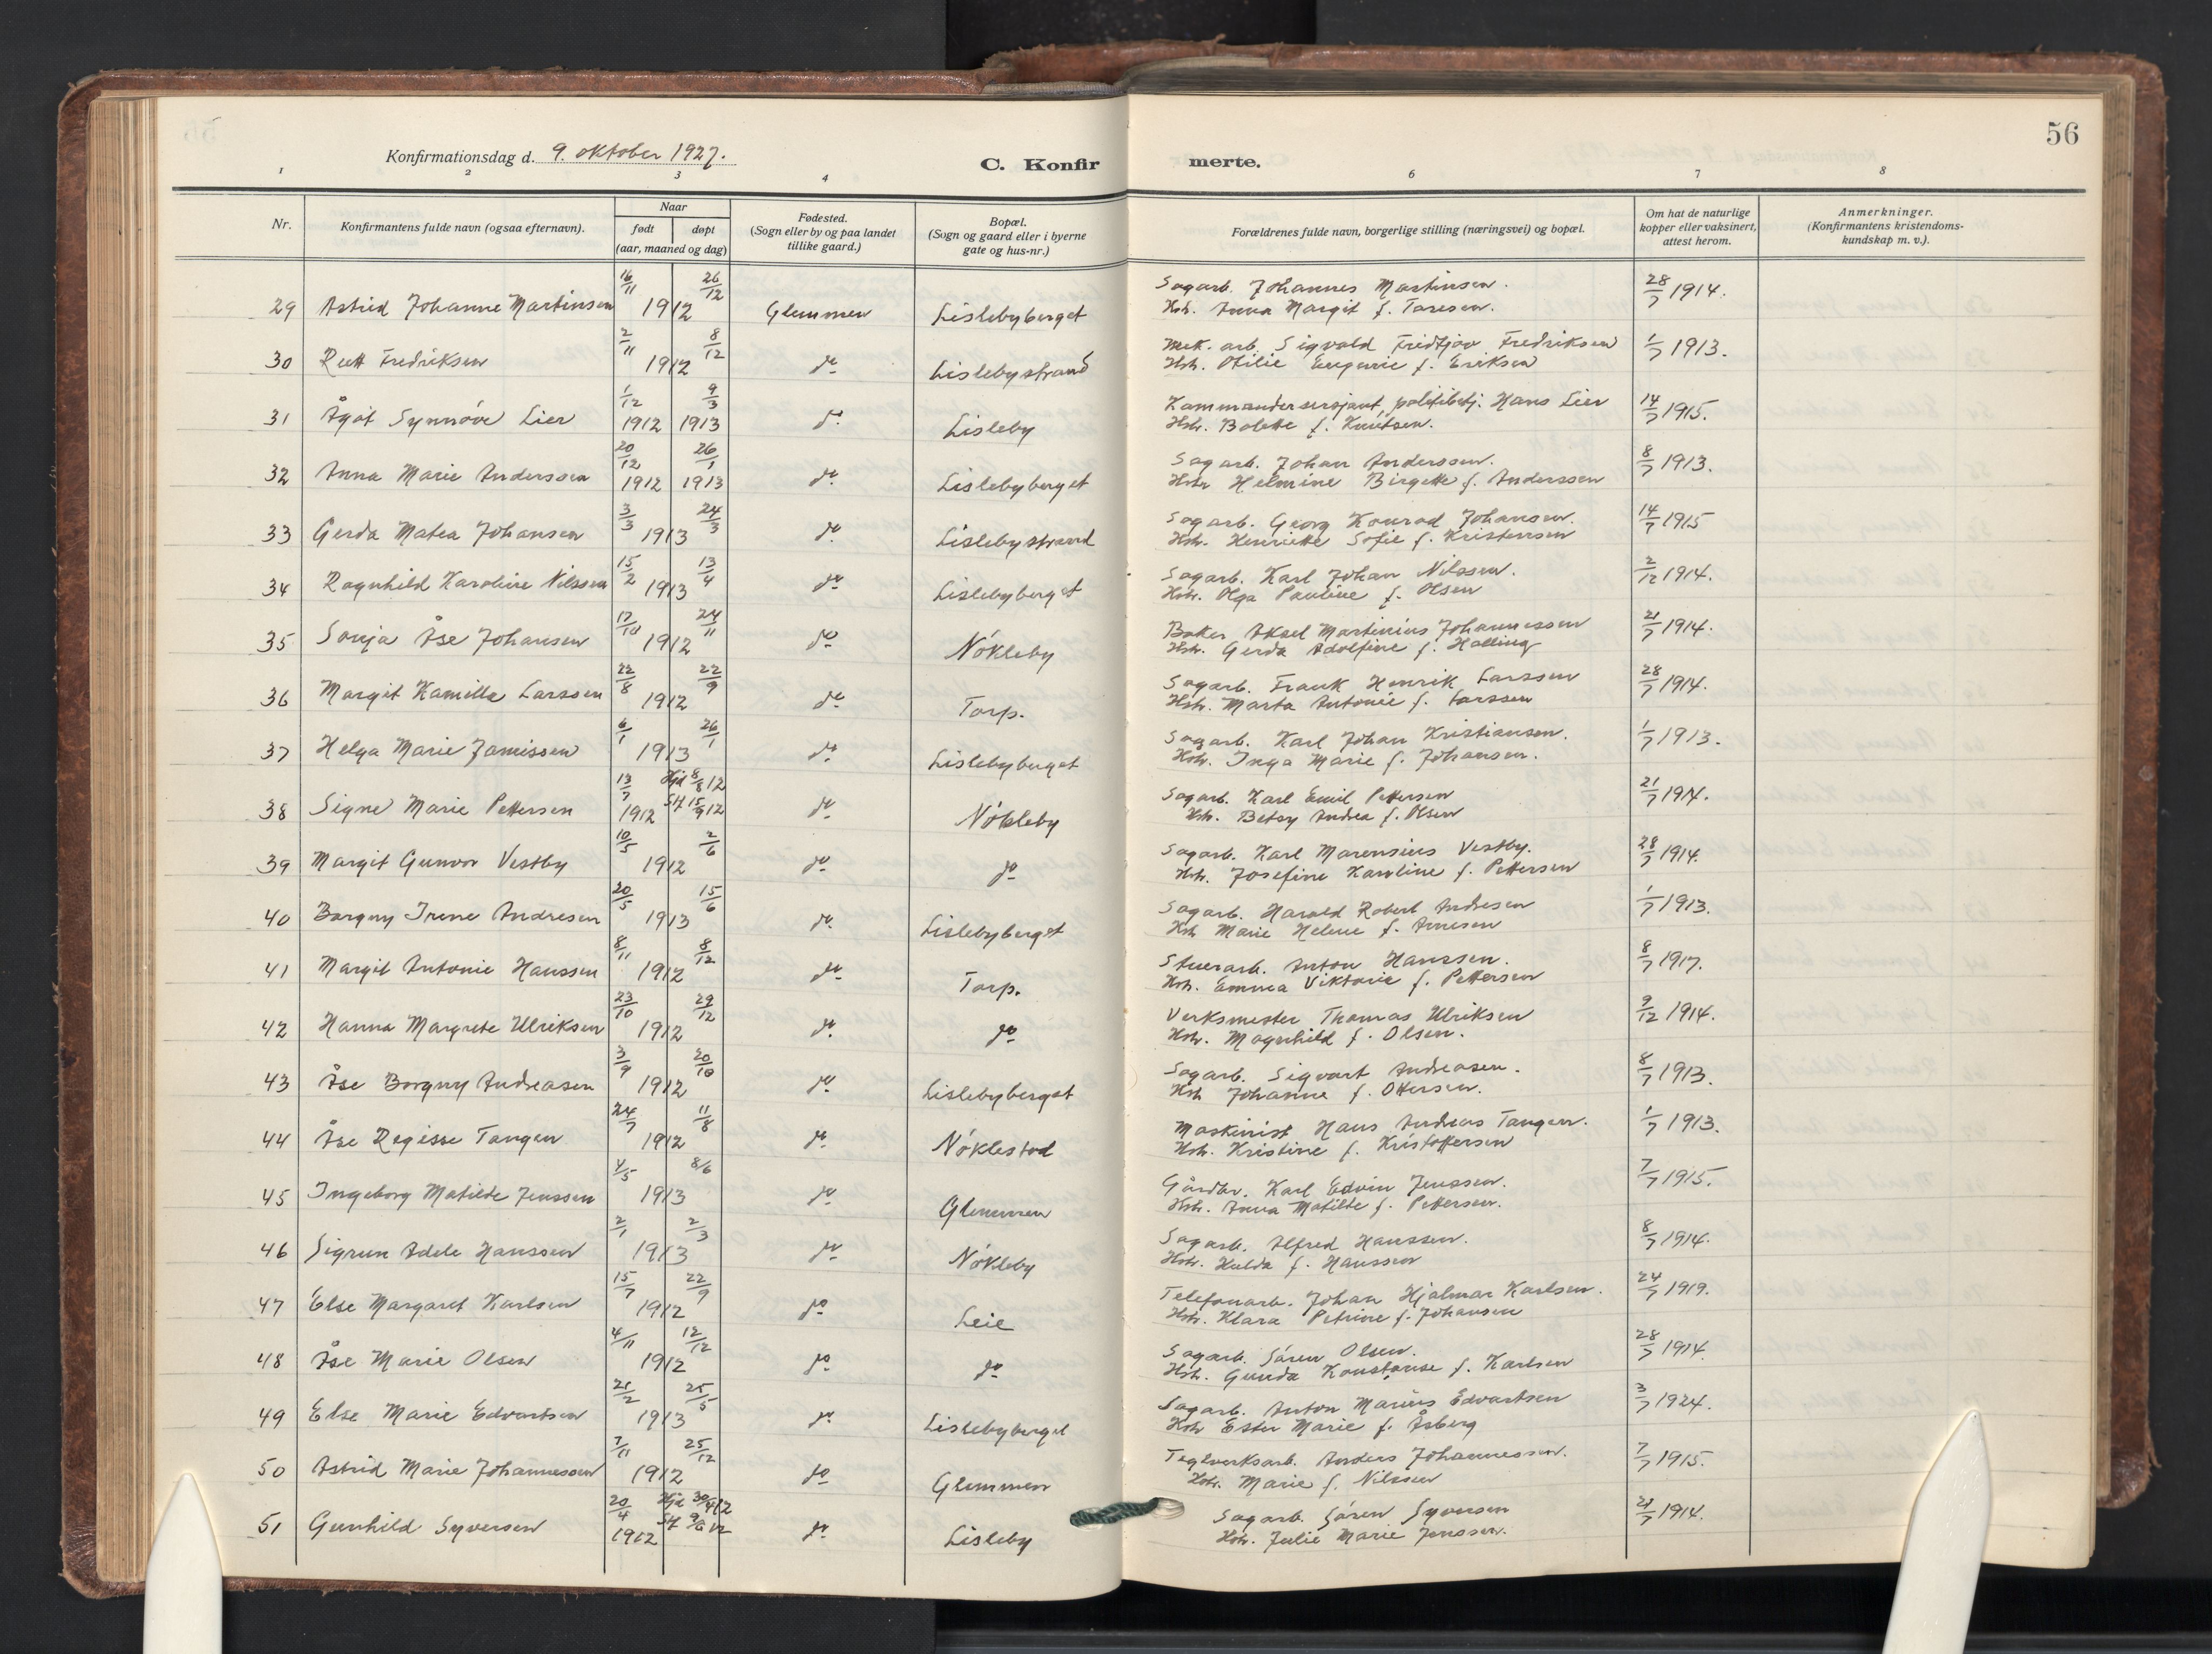 56
Konfirmationsdag d. 9. oktober 1927.
C. Konfirmerte.
1 2 3 4 6 7 8
Nr.
Konfirmantens fulde navn (ogsaa efternavn).
Naar
født døpt
(aar, maaned og dag)
Fødested.
(Sogn eller by og paa landet
tillike gaard.)
Bopæl.
(Sogn og gaard eller i byerne
gate og hus-nr.)
Forældrenes fulde navn, borgerlige stilling (næringsvei) og bopæl.
Om hat de naturlige
kopper eller vaksinert,
attest herom.
Anmerkninger.
(Konfirmantens kristendoms-
kundskap m. v.).
29 Astrid Johanne Martinsen 16/11 26/12 1912 Glemmen Lislebyberget Sagarb. Johannes Martinsen. 28/7 1914.
Hstr. Anna Margit f. Taresen.
30 Rutt Fredriksen 2/11 8/12 1912 do Lislebystrand Mek. arb. Sigvald Fridtjov Fredriksen 1/7 1913.
Hstr. Otilie Eugenie f. Eriksen
31 Ågot Synnöve Lier 1/12 1912 9/3 1913 do Lisleby Kommandersersjant, politibetj. Hans Lier 14/7 1915.
Hstr. Bolette f. Knutsen.
32 Anna Marie Anderssen 20/12 1912 26/1 1913 do Lislebyberget Sagarb. Johan Anderssen. 8/7 1913.
Hstr Helmine Birgette f. Anderssen
33 Gerda Matea Johansen 3/3 24/3 1913 do Lislebystrand Sagarb. Georg Konrad Johansen. 14/7 1915
Hstr. Henriette Sofie f. Kristensen
34 Ragnhild Karoline Nilssen 15/2 13/4 1913 do Lislebyberget Sagarb. Karl Johan Nilssen. 2/12 1914.
Hstr. Olga Pauline f. Olsen
35 Sonja Åse Johansen 17/10 24/11 1912 do Nökleby Baker Aksel Martinius Johannessen 21/7 1914.
Hstr. Gerda Adolfine f. Halling
36 Margit Kamilla Larssen 22/8 22/9 1912 do Torp. Sagarb. Frank Henrik Larssen 28/7 1914.
Hstr. Marta Antonie f. Larssen
37 Helga Marie Jamissen 6/1 26/1 1913 do Lislebyberget Sagarb. Karl Johan Kristiansen. 1/7 1913.
Hstr. Inga Marie f. Johansen.
38 Signe Marie Pettersen 13/7 1912 Hjd 8/8 12 St 15/9 12 do Nökleby Sagarb. Karl Emil Pettersen 21/7 1914.
Hstr. Betsy Andrea f. Olsen
39 Margit Gunvor Vestby 10/5 2/6 1912 do do Sagarb. Karl Marensius Vestby. 28/7 1914.
Hstr. Josefine Karoline f. Pettersen
40 Borgny Irene Andresen 20/5 15/6 1913 do Lislebyberget Sagarb. Harald Robert Andresen 1/7 1913.
Hstr Marie Helene f. Arnesen
41 Margit Antonie Hanssen 8/11 8/12 1912 do Torp. Stuerarb. Anton Hanssen. 8/7 1917.
Hstr. Emma Viktorie f. Pettersen
42 Hanna Margrete Ulriksen 23/10 29/12 1912 do do Verksmester Thomas Ulriksen 9/12 1914.
Hstr. Magnhild f. Olsen.
43 Åse Borgny Andreasen 3/9 20/10 1912 do Lislebyberget Sagarb. Sigvart Andreasen. 8/7 1913.
Hstr Johanne f. Ottersen.
44 Åse Regisse Tangen 24/7 11/8 1912 do Nöklestad Maskinist Hans Andreas Tangen. 1/7 1913.
Hstr. Kristine f. Kristoffersen
45 Ingeborg Matilde Jenssen 4/5 8/6 1913 do Glemmen Gårdbr. Karl Edvin Jenssen. 7/7 1915.
Hstr. Anna Matilde f. Pettersen.
46 Sigrun Adele Hanssen 2/1 2/3 1913 do Nökleby Sagarb. Alfred Hanssen. 8/7 1914.
Hstr. Hulda f. Hanssen
47 Else Margaret Karlsen 15/7 22/9 1912 do Leie Telefonarb. Johan Hjalmar Karlsen. 24/7 1919.
Hstr. Klara Petrine f. Johansen
48 Åse Marie Olsen 4/11 12/12 1912 do do Sagarb. Sören Olsen. 28/7 1914.
Hstr. Gunda Konstanse f. Karlsen
49 Else Marie Edvartsen 21/2 25/5 1913 do Lislebyberget Sagarb. Anton Marius Edvartsen 3/7 1924.
Hstr Ester Marie f. Åsberg
50 Astrid Marie Johannessen 7/11 25/12 1912 do Glemmen Teglverksarb. Anders Johannessen. 7/7 1915.
Hstr. Marie f. Nilssen
51 Gunhild Syversen 20/4 1912 Hjd 30/4 12 St 9/6 12 do Lisleby Sagarb. Sören Syversen 21/7 1914.
Hstr. Julie Marie Jenssen.